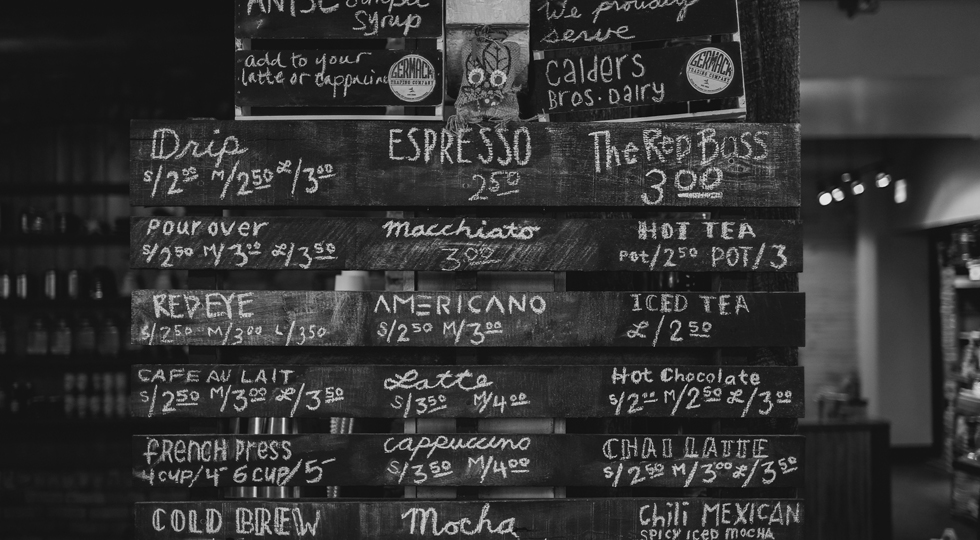 ANISE Simple
Syrup
add to your
latte or cappuccino
GERMACK
TRADING COMPANY
We proudly
serve
Calders
Bros. Dairy
GERMACK
TRADING COMPANY
Drip
S/2⁰⁰ M/2⁵⁰ L/3⁰⁰
ESPRESSO
2⁵⁰
The Red Bass
3⁰⁰
Pour over
S/2⁵⁰ M/3⁰⁰ L/3⁵⁰
Macchiato
3⁰⁰
HOT TEA
Pot/2⁵⁰ POT/3
REDEYE
S/2⁵⁰ M/3⁰⁰ L/3⁵⁰
AMERICANO
S/2⁵⁰ M/3⁰⁰
ICED TEA
L/2⁵⁰
CAFE AU LAIT
S/2⁵⁰ M/3⁰⁰ L/3⁵⁰
Latte
S/3⁵⁰ M/4⁰⁰
Hot Chocolate
S/2⁰⁰ M/2⁵⁰ L/3⁰⁰
FRENCH PRESS
4 CUP/4 6 CUP/5
Cappuccino
S/3⁵⁰ M/4⁰⁰
CHAI LATTE
S/2⁵⁰ M/3⁰⁰ L/3⁵⁰
COLD BREW
Mocha
Chili MEXICAN
SPICY ICED MOCHA